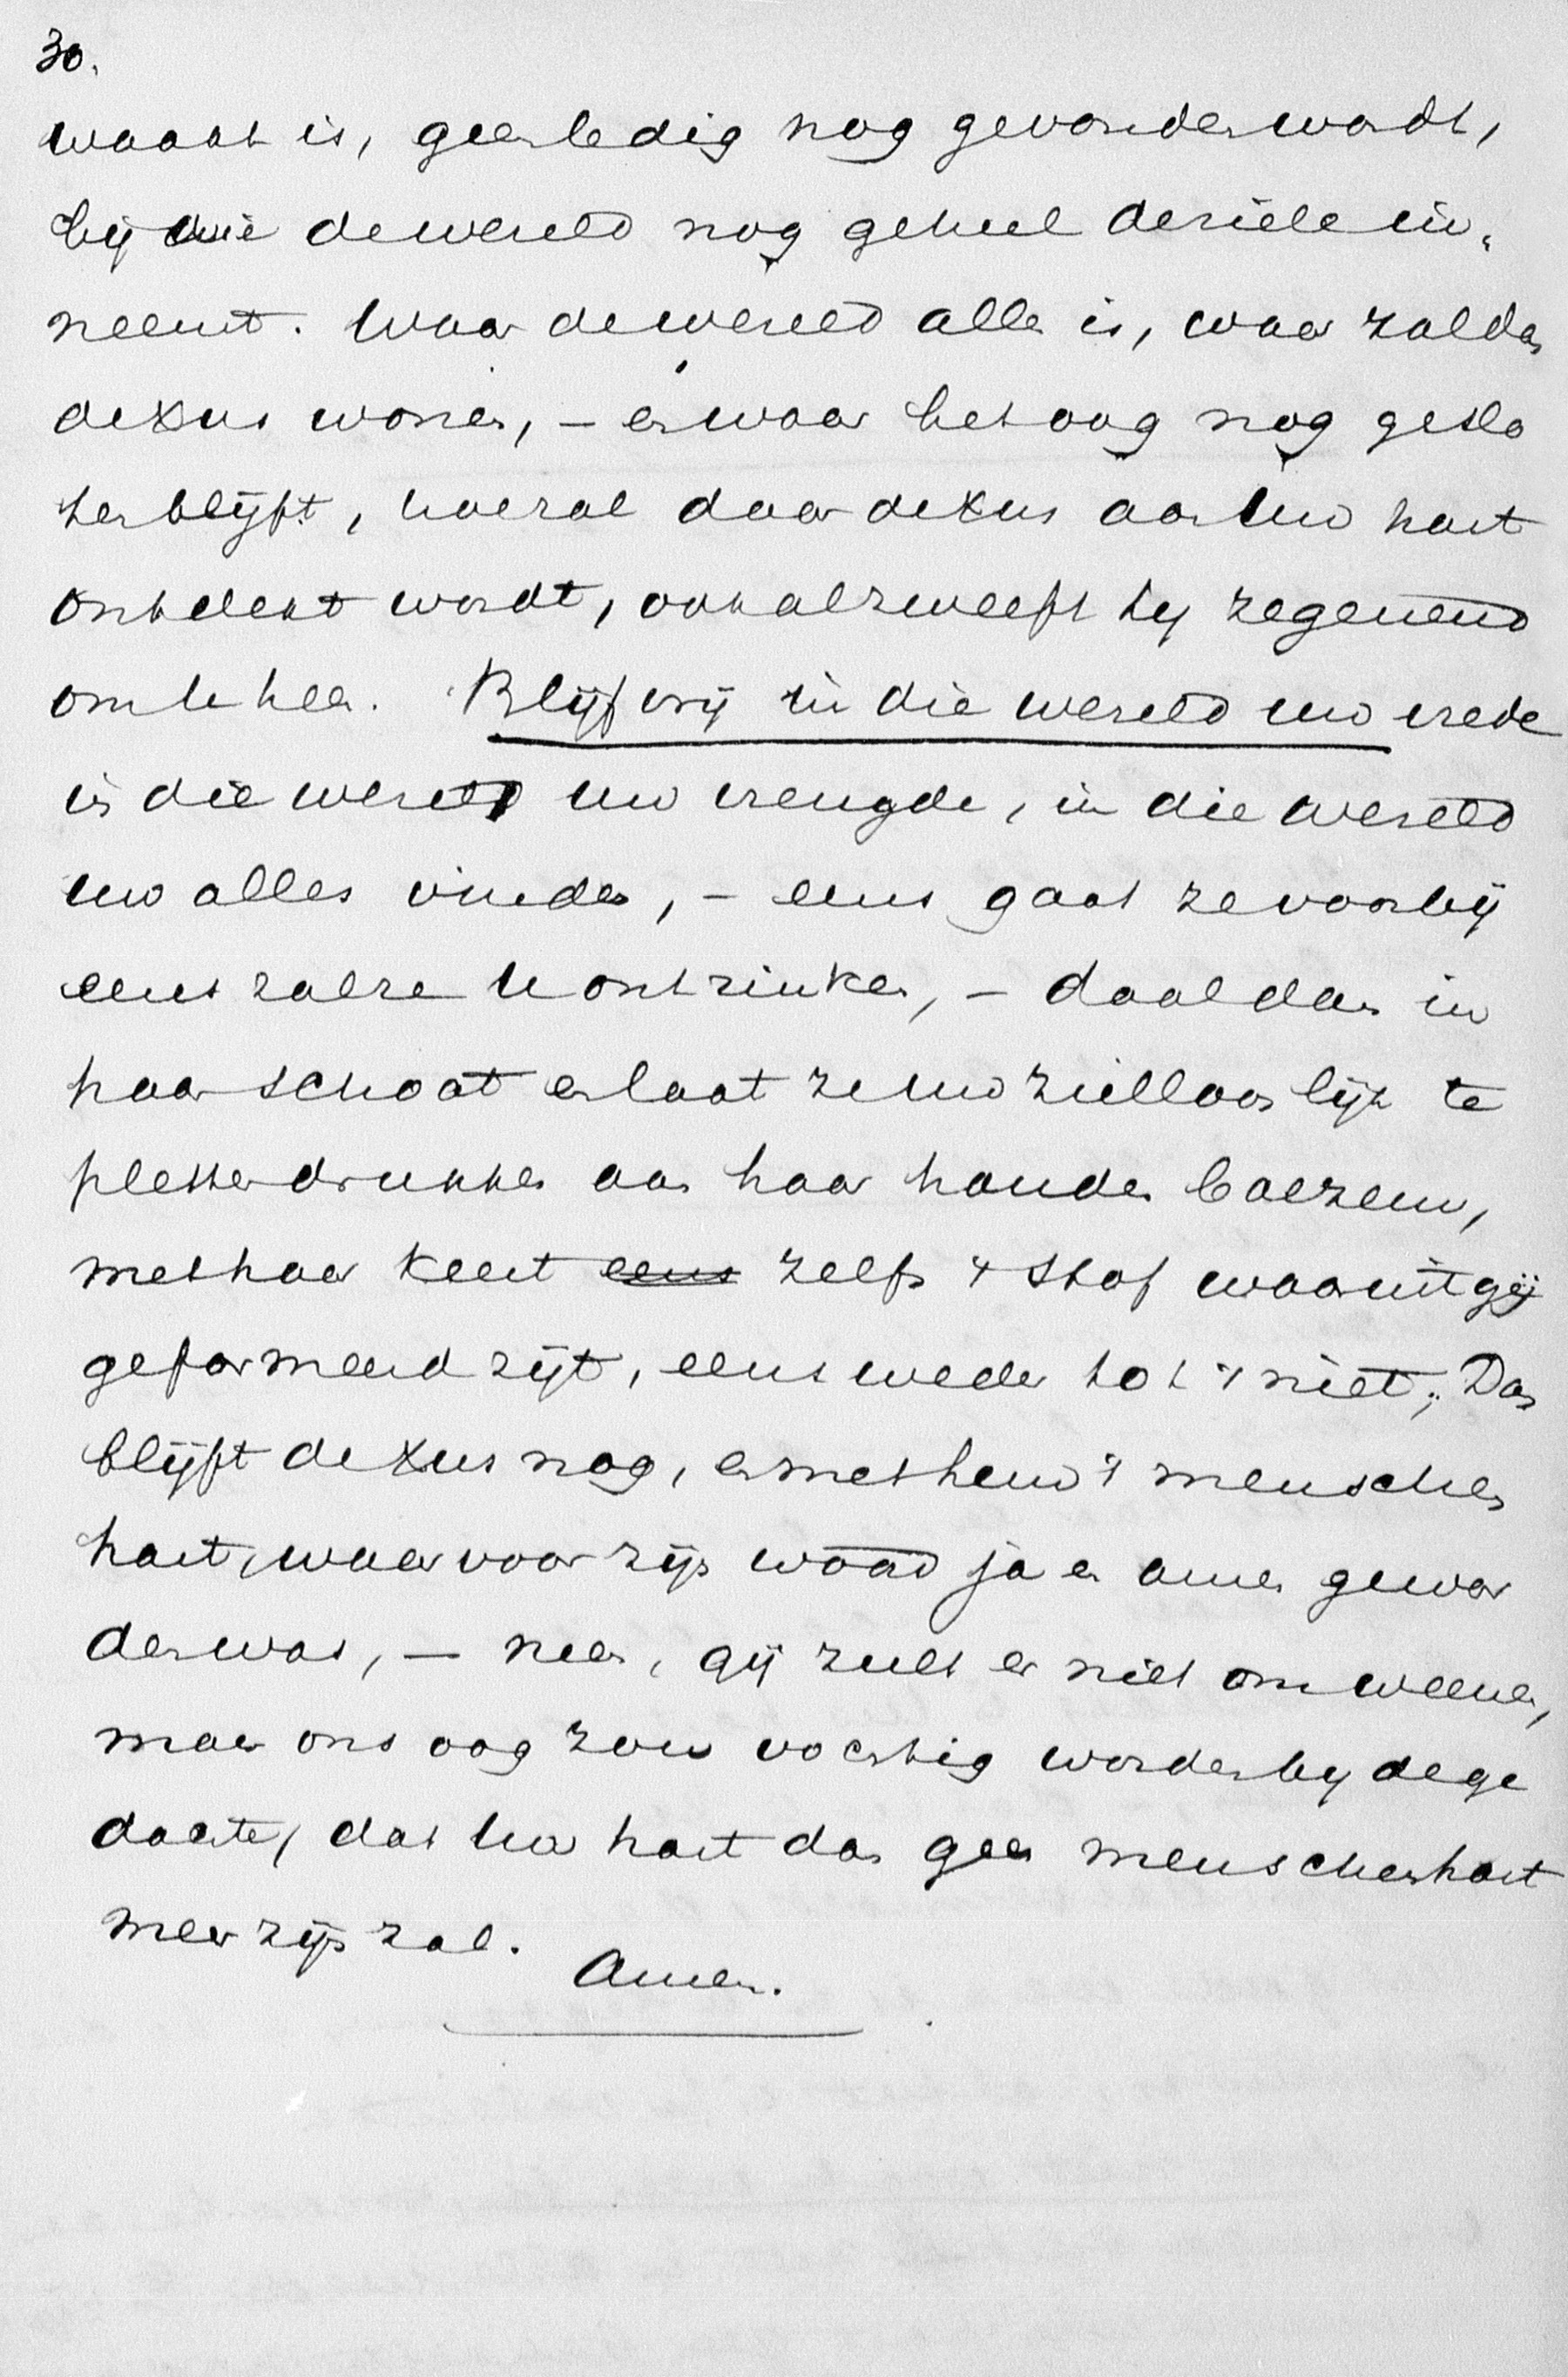 30.
waakt is, geen ledig nog gevonden wordt,
bij wie de wereld nog geheel de ziele in-
neemt. Waar de wereld alles is, waar zal dan
de Xus wonen, – en waar het oog nog geslo
ten blijft, hoe zal daar de Xus aan Uw hart
ontdekt wordt, ook al zweeft hij zegenend
om U heen. Blijf vrij in die wereld uw vrede
in die wereld uw vreugde, in die wereld
uw alles vinden, – eens gaat ze voorbij
eens zal ze U ontzinken, – daal dan in
haar schoot en laat ze Uw zielloos lijk te
pletter drukken aan haar houden boezem,
met haar keert eens zelfs 't stof waaruit gij
geformeerd zijt, eens weder tot 't niet; Dan
blijft de Xus nog, en met hem 't menschen
hart, waarvoor zijn woord ja en amen gewor
den was, – neen, gij zult er niet om weenen,
maar ons oog zou vochtig worden bij de ge
dachte, dat Uw hart dan geen menschenhart
meer zijn zal.
Amen.